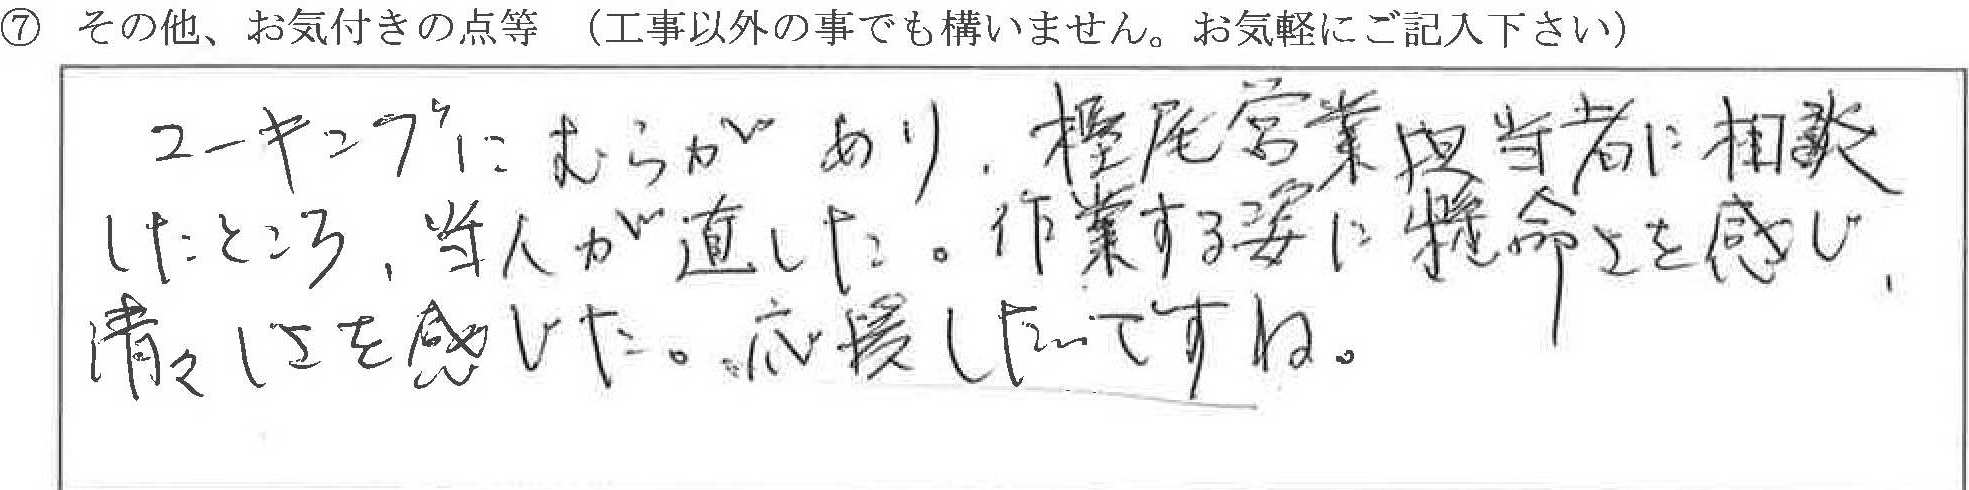 ⑦ その他、お気付きの点等 （工事以外の事でも構いません。お気軽にご記入下さい）
コーキングにむらがあり、樫尾営業担当者に相談
したところ、当人が直した。作業する姿に懸命さを感じ、
清々しさを感じた。応援したいですね。